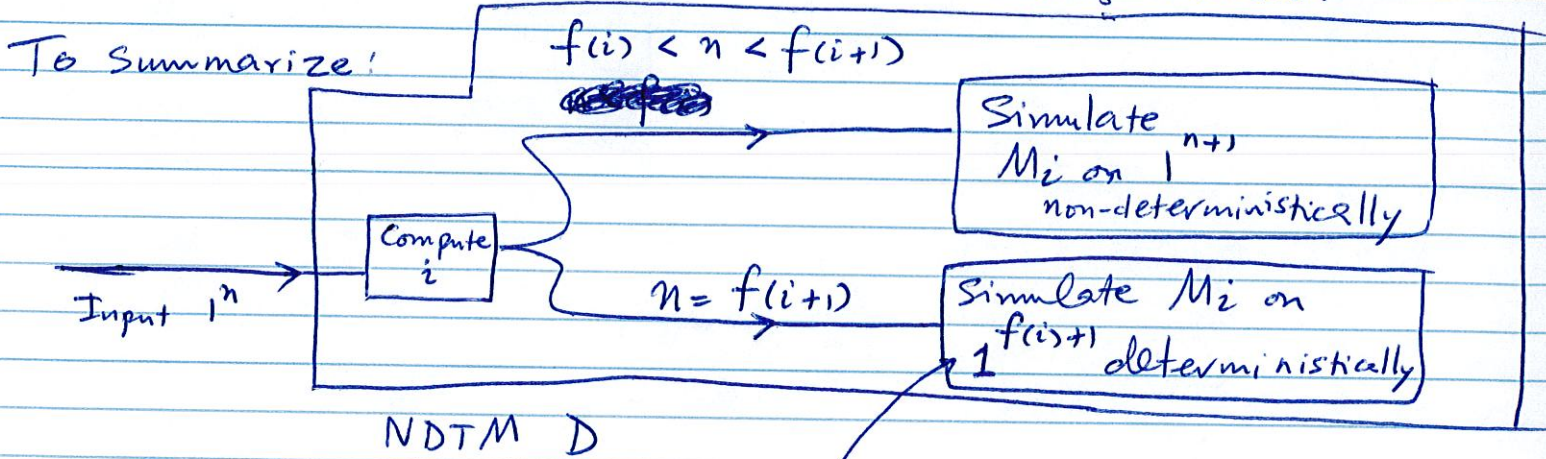 To Summarize:
f(i) < n < f(i+1)
Simulate
M_i on 1^{n+1}
non-deterministically
Compute
i
Input 1^n
n = f(i+1)
Simulate M_i on
1^{f(i)+1} deterministically
NDTM D